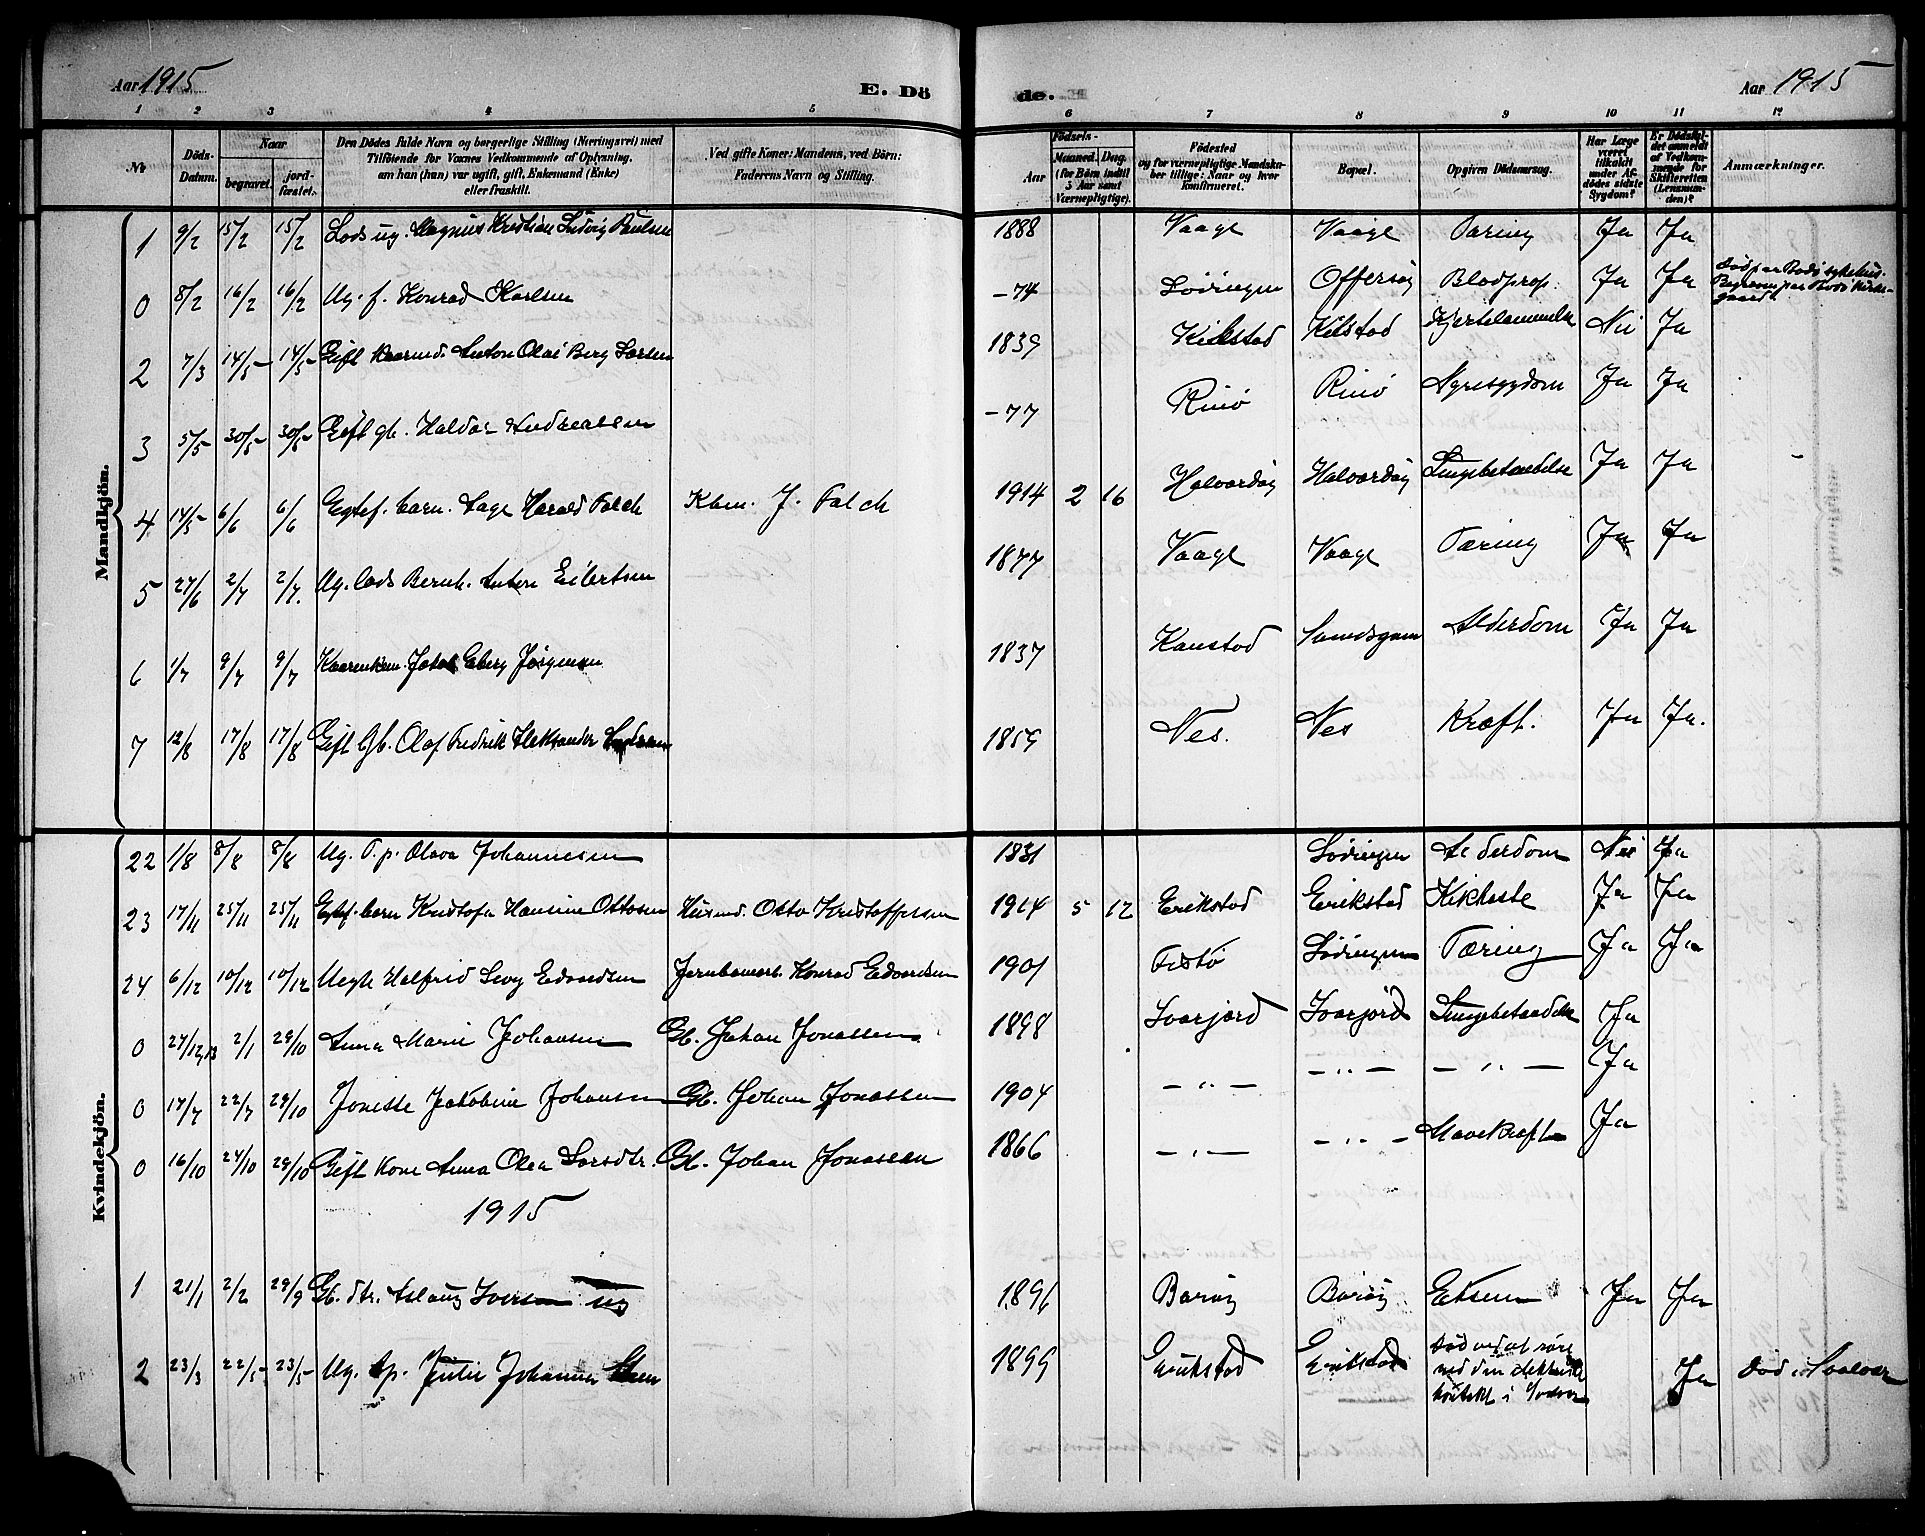 Aar 1915
E. Dö
de.
Aar 1915
1 2 3 4 5 6 7 8 9 10 11 12
№
Döds-Datum.
Naar
begravet.
jord-fæstet.
Den Dödes fulde Navn og borgerlige Stilling (Næringsvei) med
Tilföiende for Voxnes Vedkommende af Oplysning,
om han (hun) var ugift, gift, Enkemand (Enke)
eller fraskilt.
Ved gifte Koner: Mandens, ved Börn:
Faderens Navn og Stilling.
Födsels-
Aar
Maaned. Dag.
(for Börn indtil
5 Aar samt
Værnepligtige).
Födested
og for værnepligtige Mandska-
ber tillige: Naar og hvor
konfirmeret.
Bopæl.
Opgiven Dödsaarsag.
Har Læge
været
tilkaldt
under Af-
dödes sidste
Sygdom?
Er Dödsfal-
det anmeldt
af Vedkom-
mende for
Skifteretten
(Lensman-
den)?
Anmærkninger.
Mandkjön.
1 9/2 15/2 15/2 Lods ug. Magnus Kristian Ludvig Paulsen 1888 Vaage Vaage Tæring Ja Ja
0 8/2 16/2 16/2 Ug. f. Konrad Karlsen -74 Lödingen Offersöy Blodprop. Ja Ja Död paa Bodö sykehus.
2 7/3 14/5 14/5 Gift Kaarmd. Anton Olai Berg Larsen 1839 Kilstad Kilstad Hjertelammelse Nei Ja
3 5/5 30/5 30/5 Gift gb. Haldor Andreassen -77 Rinö Rinö Nyresygdom Ja Ja
4 14/5 6/6 6/6 Egtef. barn. Aage Harald Falch Kbm. J. Falch 1914 2 16 Halvardöy Halvardöy Lungebetændelse Ja Ja
5 27/6 2/7 2/7. Ug. lods Bernh. Anton Eilertsen 1877 Vaage Vaage Tæring Ja Ja
6 1/7 9/7 9/7 Kaarenkem. Jakob Eberg Jörgensen 1837 Kanstad Alderdom Ja Ja
7 12/8 17/8 17/8 Gift Gb. Olaf Fredrik Aleksander 1859 Nes. Nes Kræft. Ja Ja.
Kvindekjön.
22 1/8 8/8 8/8 Ug. T.p. Olava Johannesen 1831 Lödingen Alderdom Nei Ja
23 17/11 25/11 25/11 Egtef. barn Kristofa Hansine Ottosen Husmd. Otto Kristoffersen 1914 5 12 Erikstad Erikstad Kikhoste Ja Ja
24 6/12 10/12 10/12 Ugift Halfrid Levy Edvardsen Jernbanearb. Konrad Edvardsen 1901 Lödingen Tæring Ja Ja
0 27/12,13 2/1 29/10 Anna Marie Johansen Gb. Johan Jonassen 1898 Svarjord Svarjord Lungebetændelse Ja
0 17/7 22/7 29/10 Jonette Jakobine Johansen Gb. Johan Jonassen 1904 — „ — — „ — — „ — Ja
0 16/10 24/10 29/10 Gift Kone Anna Olea Larsdtr. Gb. Johan Jonassen 1866 — „ — — „ — Mavekræft Ja
1915
1 21/1 2/2 29/9 Gb. dtr. Aslaug Iversen ug 1896 Baröy Baröy Ja Ja
2 23/3 22/5 23/5 Ug. tp. Julie Johanna 1899 Erikstad Erikstad Död ved at röre
ved den elektriske
kontakt i Svolvær Ja Död i Svolvær